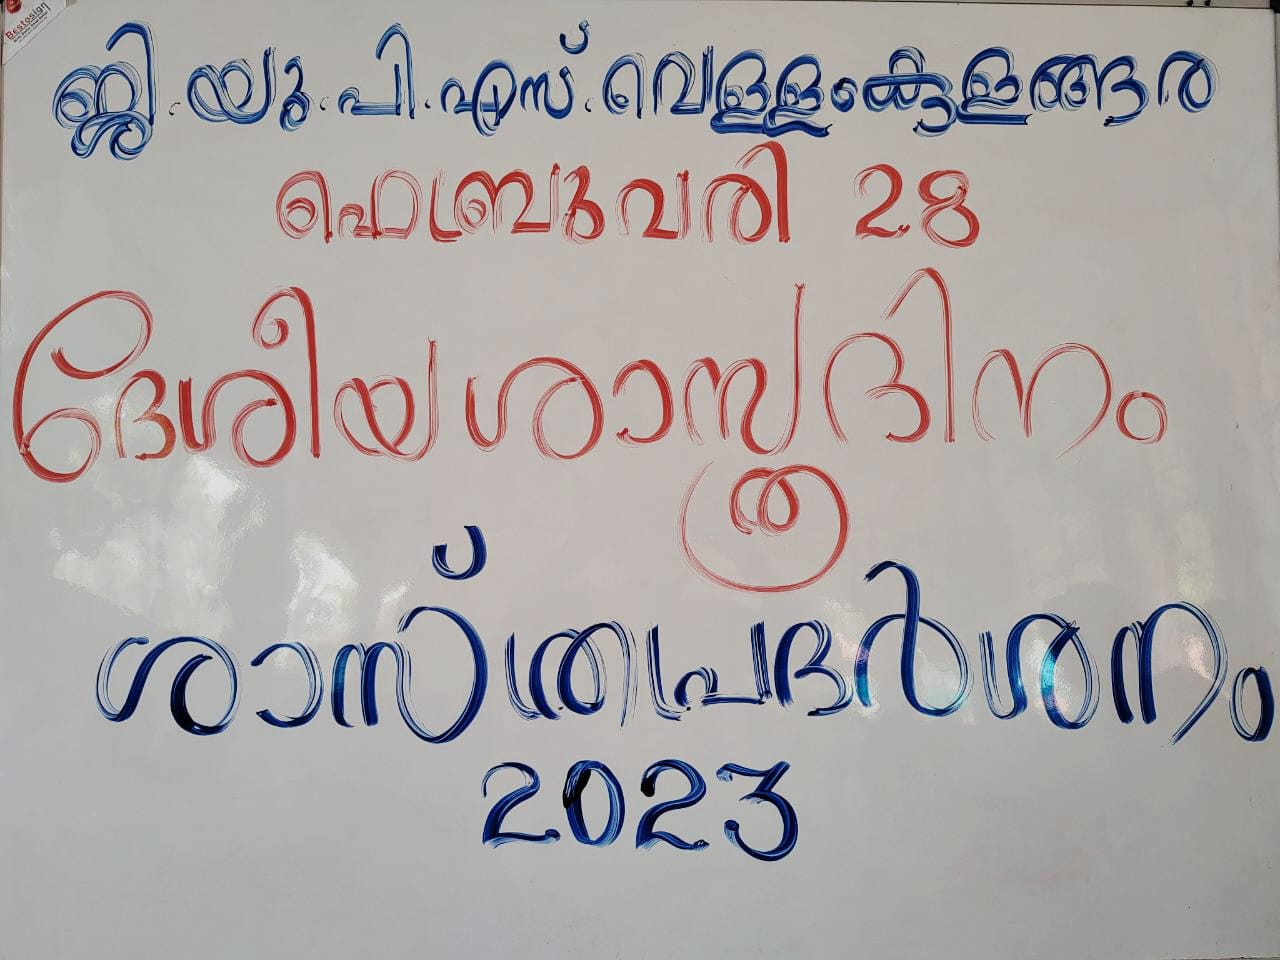 Bestosign
ജി.യു.പി.എസ്.വെള്ളംകുളങ്ങര
ഫെബ്രുവരി 28
ദേശീയശാസ്ത്രദിനം
ശാസ്ത്രപ്രദർശനം
2023